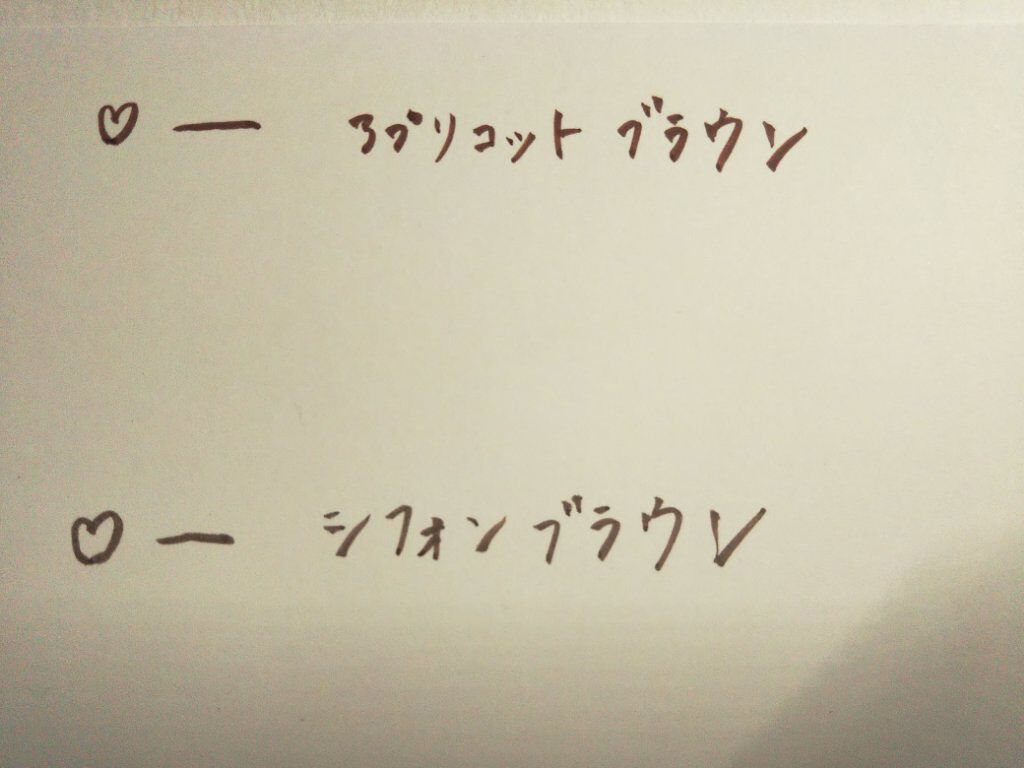 ♡ー アプリコット ブラウン
♡ー シフォン ブラウン